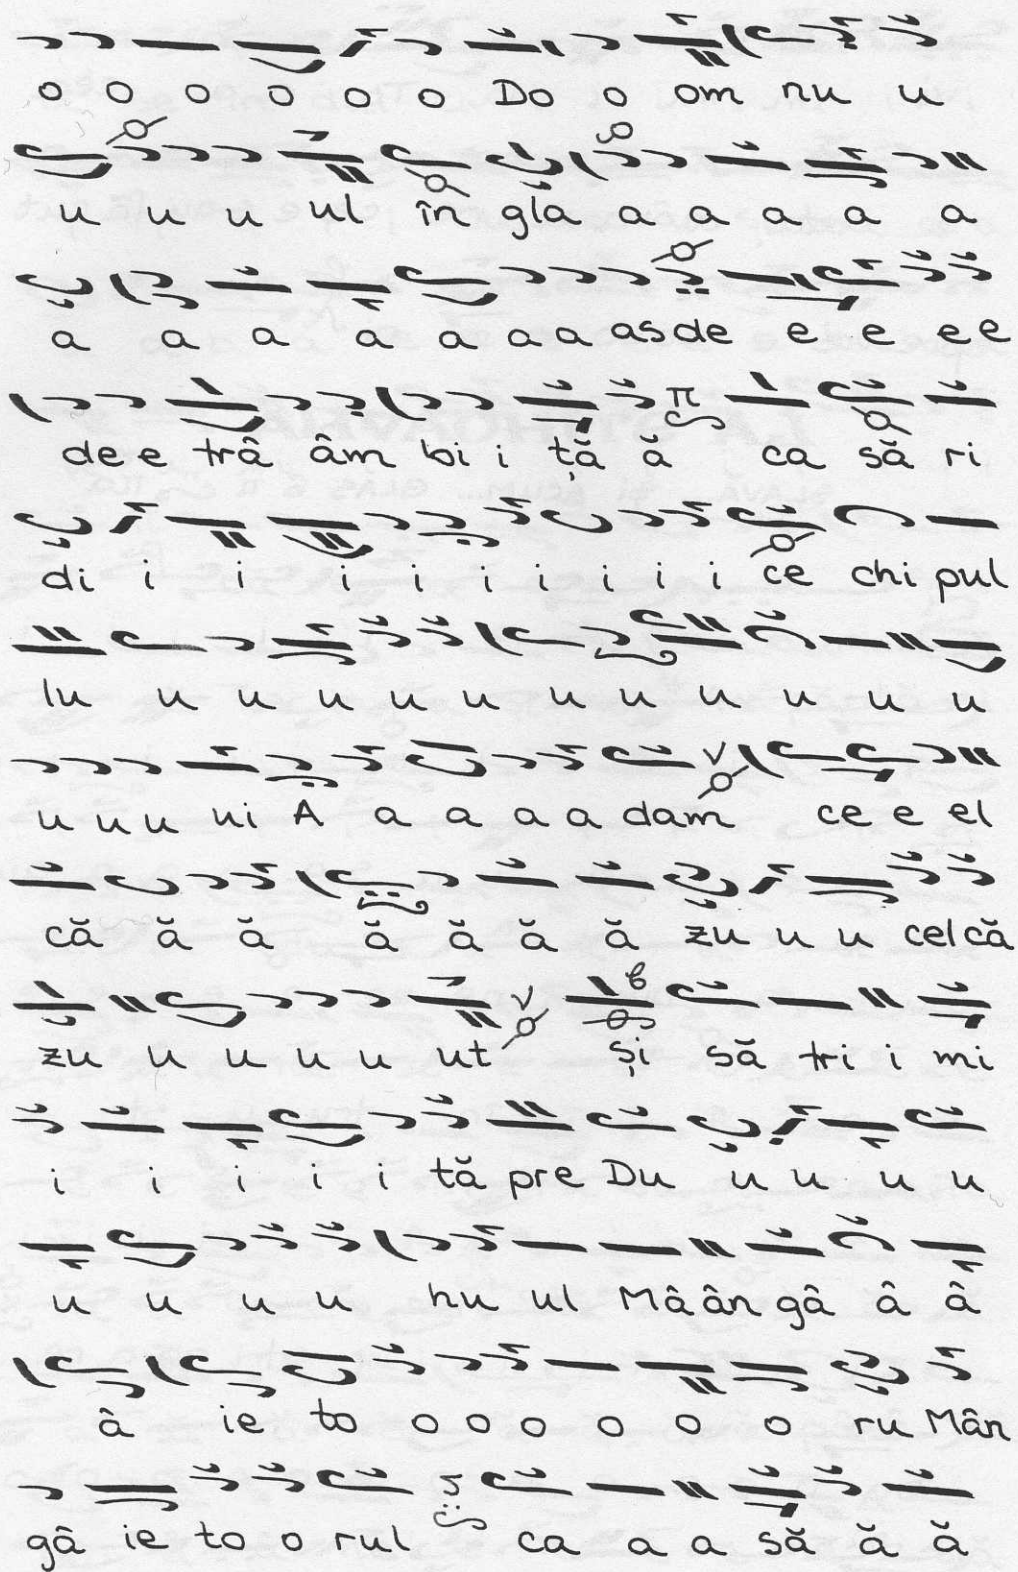 o o o o o o Do o om nu u
u u u ul în gla a a a a a
a a a a a a a as de e e e e
de e trâ âm bi i ță ă ca să ri
di i i i i i i i i ce chi pul
lu u u u u u u u u u u u
u u u ui A a a a a dam ce e el
că ă ă ă ă ă ă zu u u cel că
zu u u u u ut și să tri i mi
i i i i i tă pre Du u u u u
u u u u hu ul Mâ ân gâ â â
â ie to o o o o o o ru Mân
gâ ie to o rul ca a a să ă ă